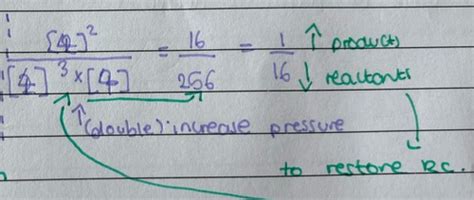 [4]² / [4]³ × [4] = 16 / 256 = 1 / 16 ↑ products ↓ reactants
↑ (double) increase pressure
to restore Kc.